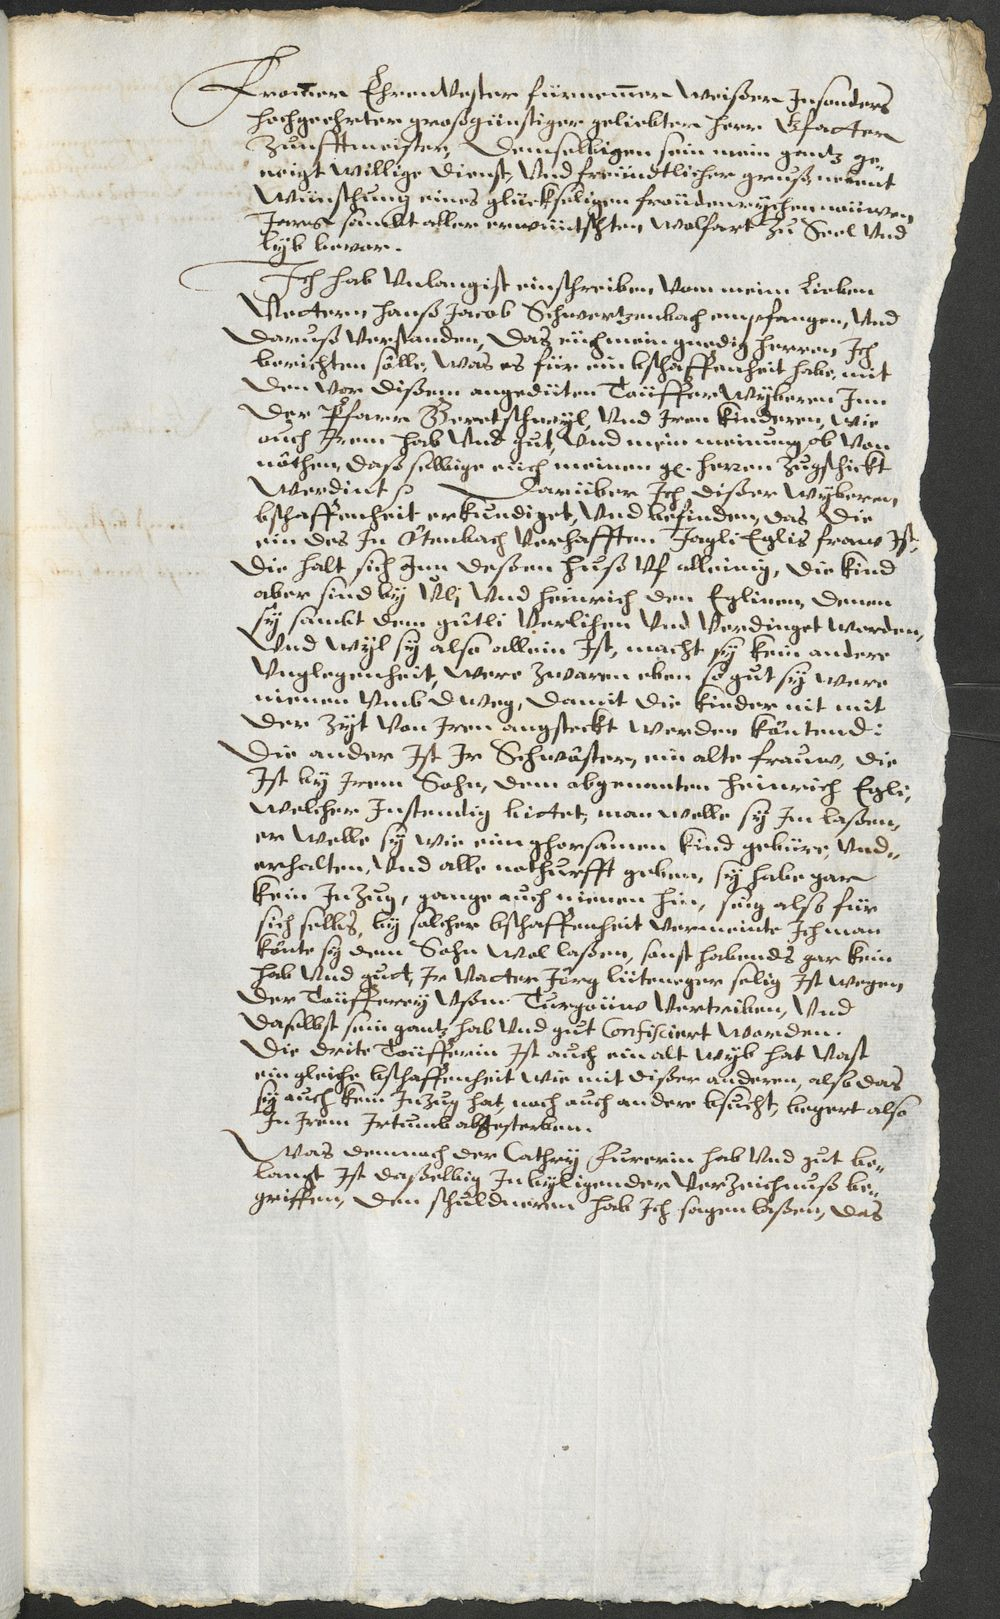 Frommer EhrenVester fürnemmer Weißer Jnsonders
hochgeehrter großgünstiger geliebter herr Gfatter
Zunfftmeister, Demselbigen sein mein gantz ge„
neigt Willige dienst, Vnd freündtlicher gruß nebent
Wünschung eines glückseligen fröüdenrÿchen neüwen
Jares sambt aller erwüntschten Wolfart zu Seel Vnd
lÿb bevor.
Jch hab Vnlangist ein schreiben Vom meim Lieben
Vettern Hanß Jacob Schwertzenbach empfangen, Vnd
daruß Verstanden, Das eüch mein gnedig herren Jch
berichten sölle, Was es für ein bschaffenheit habe, mit
den Vor dißem angedüten Töüffer Wÿberen Jnn
der Pfarr Beretschwÿl, Vnd Jren kinderen, Wie
auch Jrem Hab Vnd gut, Vnd mein meinung ob Von
nöthen, daß selbige eüch meinen gn. herren Zugschickt
Werdint. Darüber Jch dißer Wÿberen
bschaffenheit erkundiget, Vnd befinden, das die
ein des Jn Ötenbach Verhafften Jagli Eglis frauw Jst,
die halt sich Jnn deßen huß Vf alleinig, die kind
aber sind bÿ Vli Vnd Heinrich den Eglinen, denen
sÿ sambt dem gütli Verlihen Vnd Verdinget worden,
Vnd Wÿl sÿ also allein Jst, macht sÿ kein andere
Vnglegenheit, Were Zwaren eben so gut sÿ Were
nienen Vmb d Weg, damit die kinder nit mit
der Zÿt Von Jren angsteckt Werden köntend:
Die ander Jst Jr Schwöster, ein alte frauw, die
Jst bÿ Jrem Sohn, dem abgenanten Heinrich Egli,
Welcher Jnstendig bittet, man Welle sÿ Jm laßen,
er Welle sÿ Wie eim ghorsamen kind gebüre, Vnd„
erhalten, Vnd alle nothurfft geben, sÿ habe gar
kein Jnzug, gange auch nienen hin, seig also für
sich selbs, bÿ solcher bschaffenheit Vermeinte Jch man
könte sÿ dem Sohn Wol laßen, sonst habends gar kein
Hab Vnd gutt, Jr Vatter Jörg lüteneger selig Jst Wegen
der Töüfferey Vßem Turgöüw Vertriben, Vnd
daselbst sein gantz hab Vnd gut Confisciert Worden.
Die drite Töüfferin Jst auch ein alt Wÿb hat Vast
ein gleiche bschaffenheit Wie mit dißer anderen, also das
sÿ auch kein Jnzug hat, noch auch andere bsucht, begert also
Jn Jrem Jrtumb abzesterben.
Was demnach der Cathrÿ Furerin hab Vnd gut be„
langt Jst daßelbig Jn bÿligender Verzeichnuß be„
griffen, den schuldneren hab Jch sagen laßen, das